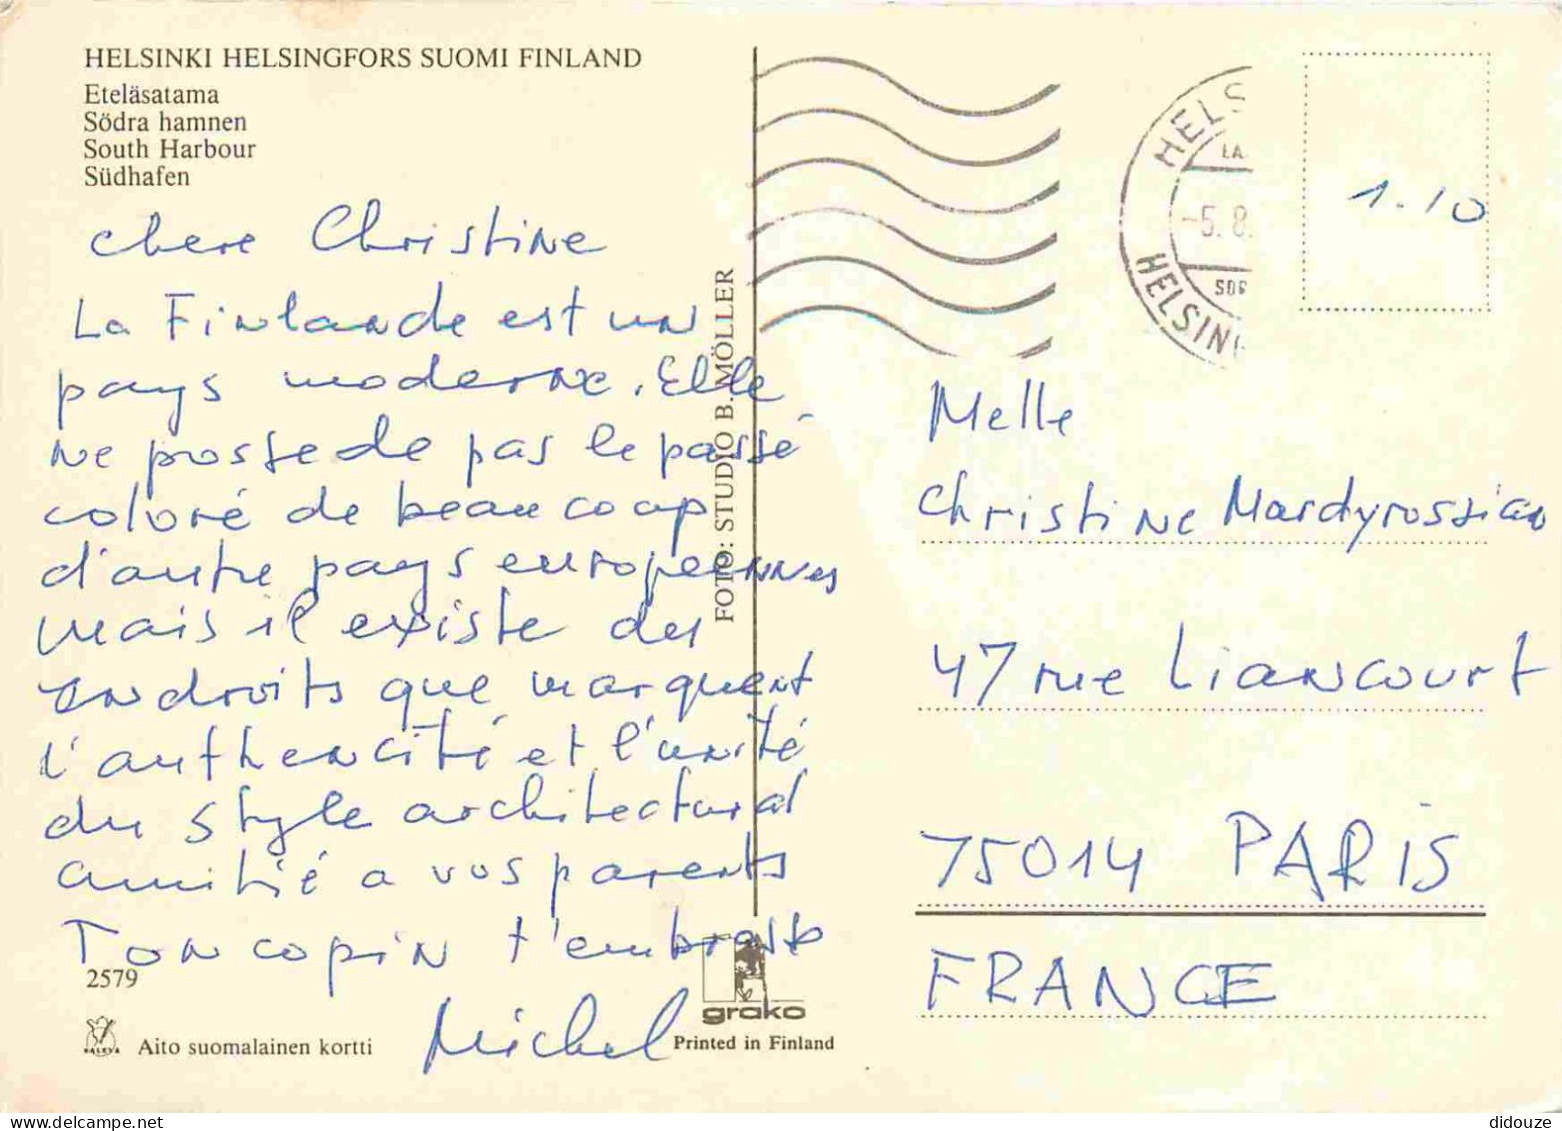 HELSINKI HELSINGFORS SUOMI FINLAND
Eteläsatama
Södra hamnen
South Harbour
Südhafen
chere Christine
La Finlande est un
pays moderne. Elle
ne possede pas le passé
coloré de beaucoup
d'autre pays européennes
mais il existe des
endroits que marquent
l'authencité et l'unité
du style architectural
amitié a vos parents
Ton copin t'embrasse
Michel
2579
Aito suomalainen kortti
FOTO: STUDIO B. MÖLLER
grako
Printed in Finland
HELS
LA
-5.8.
HELSING
1.10
Melle
Christine Mardyrossian
47 rue Liancourt
75014 PARIS
FRANCE
didouze